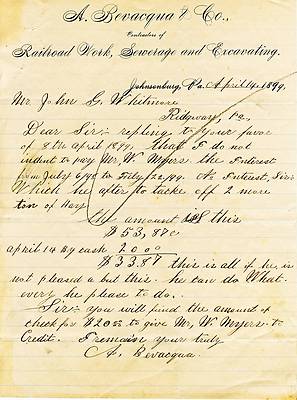 A. Bevacqua & Co.,
Contractors of
Railroad Work, Sewerage and Excavating.
Johnsonburg, Pa. April 14. 1899.
Mr John G. Whitmore
Ridgway, Pa,
Dear Sir:- repling to your favor
of 8th april 1899. that I do not
indent to pay Mr, W. Myers the Interest
from July 6/98 to July 22/99. No Interest, Sir:
Which he after to tacke off 2 more
ton of Hay.
the amount is this
$53,87c
april 14 By cash 20 00
$33.87 this is all if he is
not pleased a but this. he can do What
every he please to do.
Sir:- you will find the amount of
check for $20 00 to give Mr, W. Myers- to
Credit. I remaine your truly
A. Bevacqua.